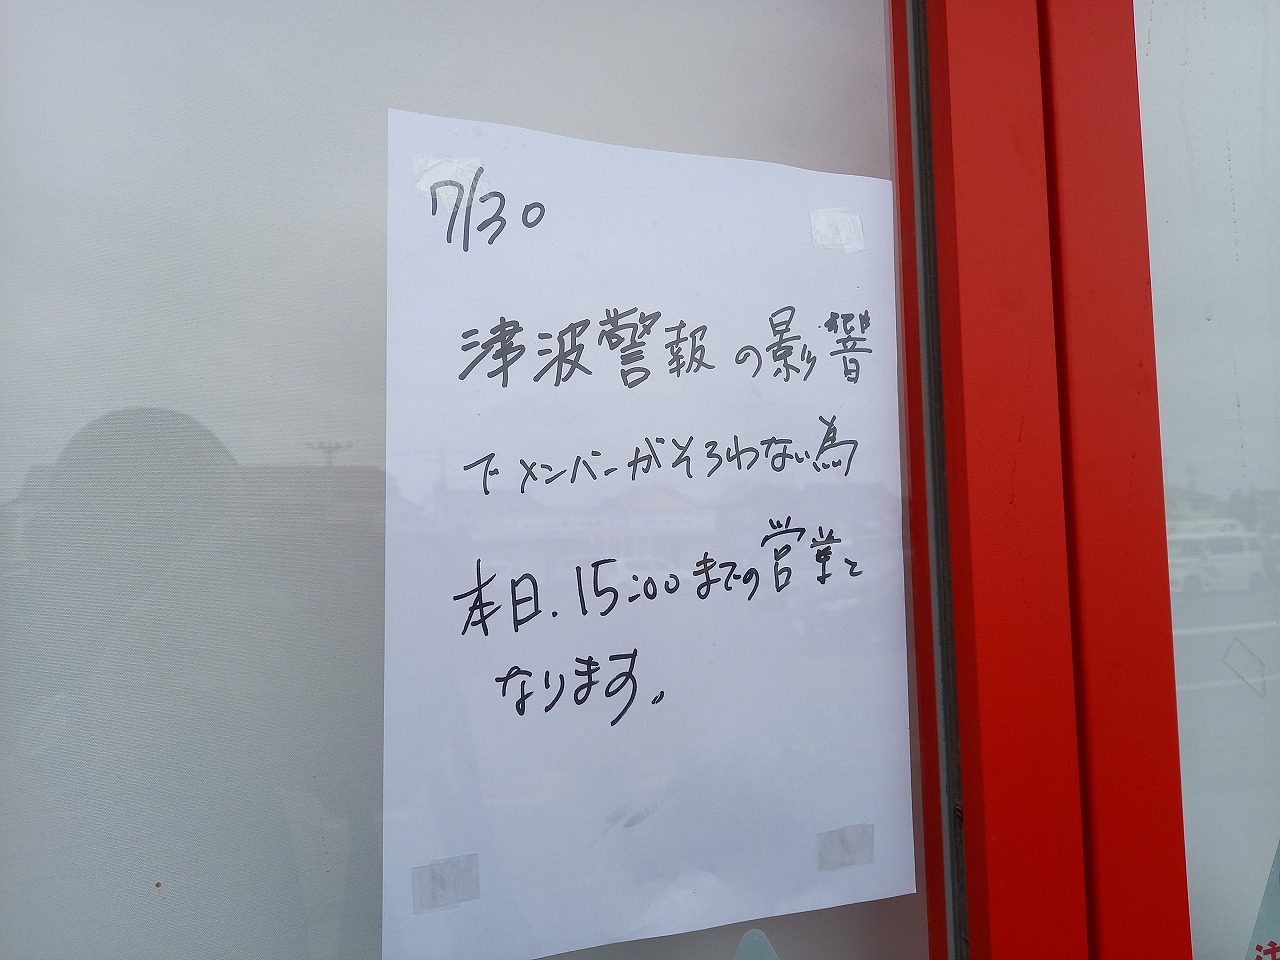 7/30
津波警報の影響
でメンバーがそろわない為
本日.15:00までの営業と
なります。
注